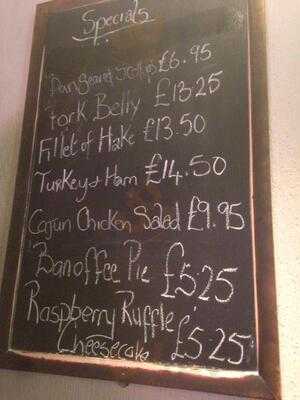 Specials
Pan Seared Scallops £6.95
Pork Belly £13.25
Fillet of Hake £13.50
Turkey & Ham £14.50
Cajun Chicken Salad £9.95
Banoffee Pie £5.25
Raspberry Ruffle
Cheesecake £5.25